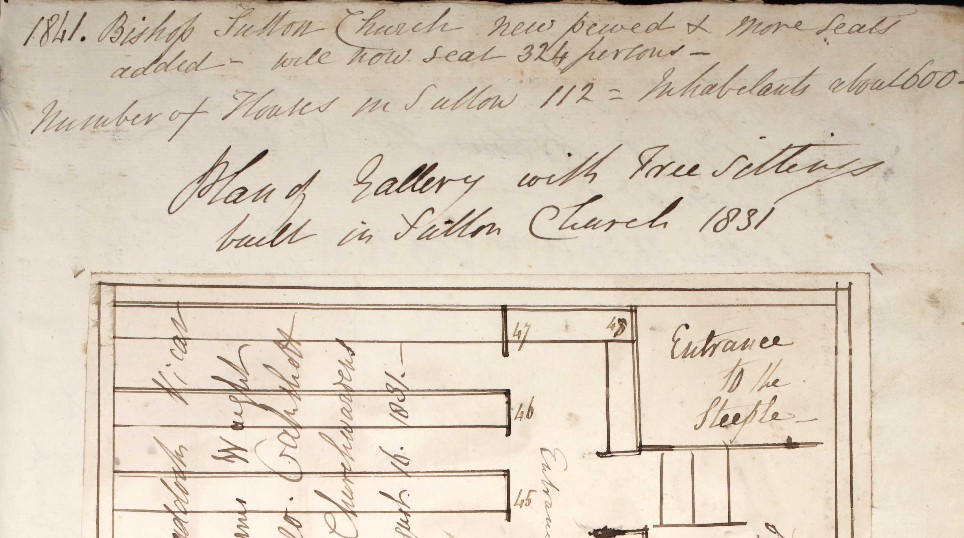 1841. Bishop Sutton Church new pewed & more seats
added - will now seat 324 persons -
Number of Houses in Sutton 112 = Inhabitants about 600 -
Plan of Gallery with Free Sittings
built in Sutton Church 1831
47
48
Entrance
to the
Steeple -
46
45
Vicar
Waught
Churchwardens
16. 1831. -